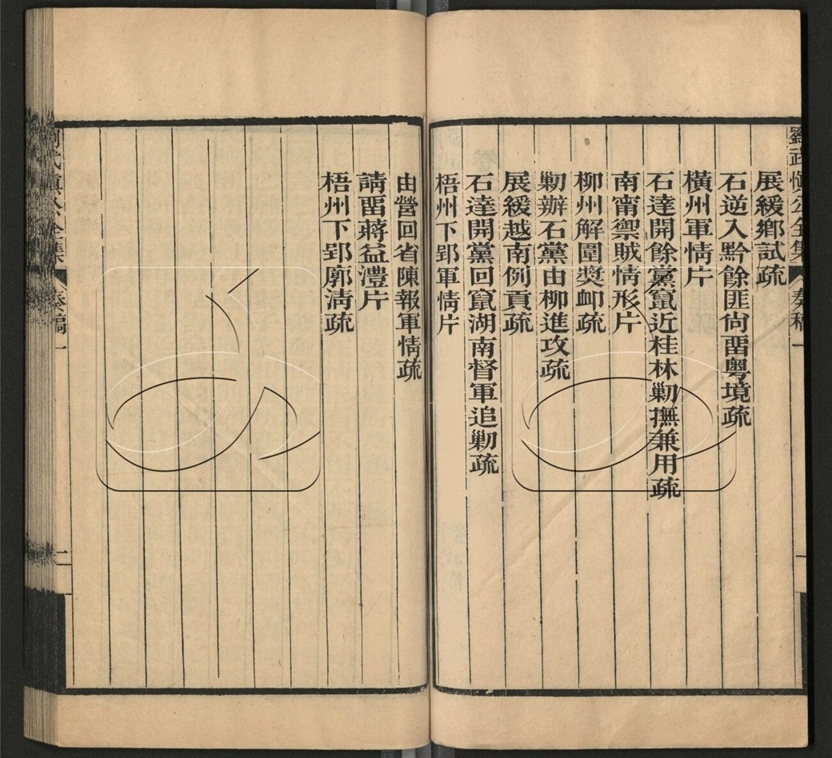 劉武慎公全集 奏稿一
展緩鄉試疏
石逆入黔餘匪尙畱粤境疏
橫州軍情片
石達開餘黨竄近桂林剿撫兼用疏
南甯禦賊情形片
柳州解圍奬卹疏
剿辦石黨由柳進攻疏
展緩越南例貢疏
石達開黨回竄湖南督軍追剿疏
梧州下郢軍情片
由營回省陳報軍情疏
請畱蔣益澧片
梧州下郢廓淸疏
全集 奏稿一
二